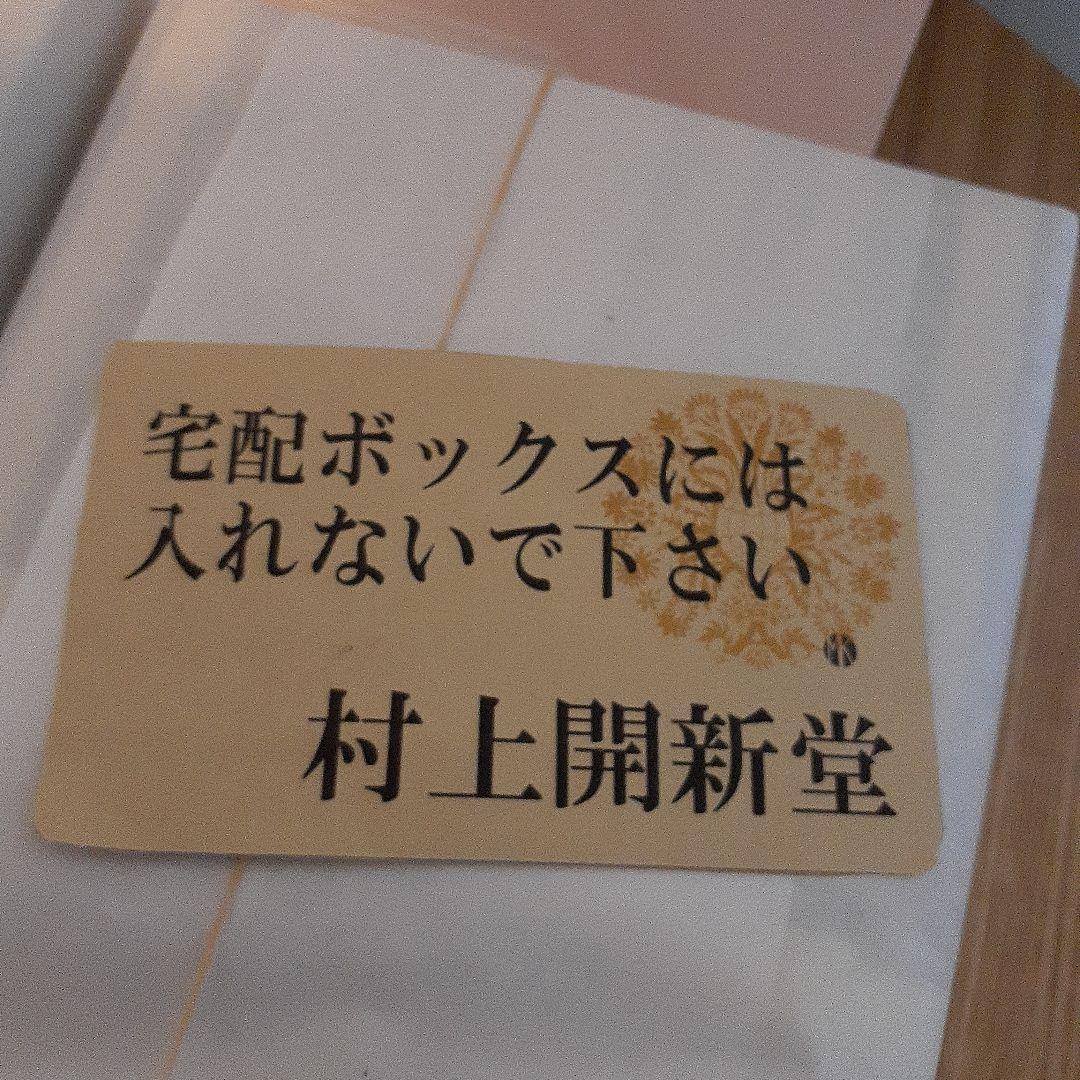 宅配ボックスには
入れないで下さい
村上開新堂